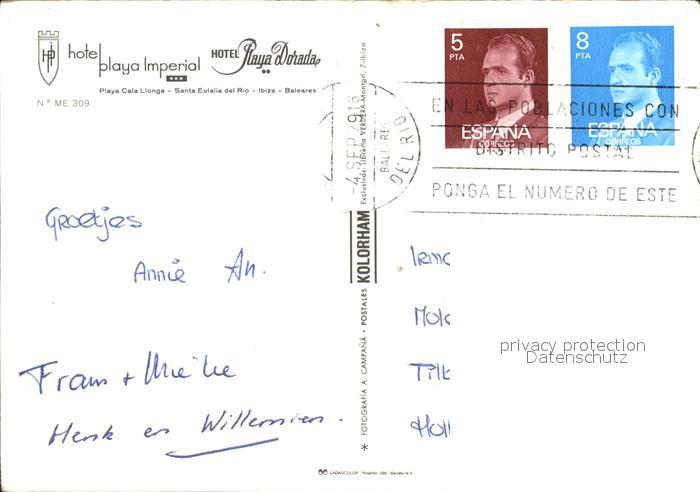 hotel playa Imperial
HOTEL Playa Dorada
Playa Cala Llonga - Santa Eulalia del Rio - Ibiza - Baleares
N.º ME 309
5
PTA
ESPAÑA
CORREOS
8
PTA
ESPAÑA
CORREOS
-4 SEP 79
BALEARES
DEL RIO
EN LAS POBLACIONES CON
DISTRITO POSTAL
PONGA EL NUMERO DE ESTE
Groetjes
Annie An.
Frans + Mieke
Henk en Willemien.
Exclusivas Librería VERDERA-Montgri, 7-Ibiza
* FOTOGRAFIA A. CAMPAÑÁ • POSTALES KOLORHAM
Irmc
Molc
Tilb
Holl
privacy protection
Datenschutz